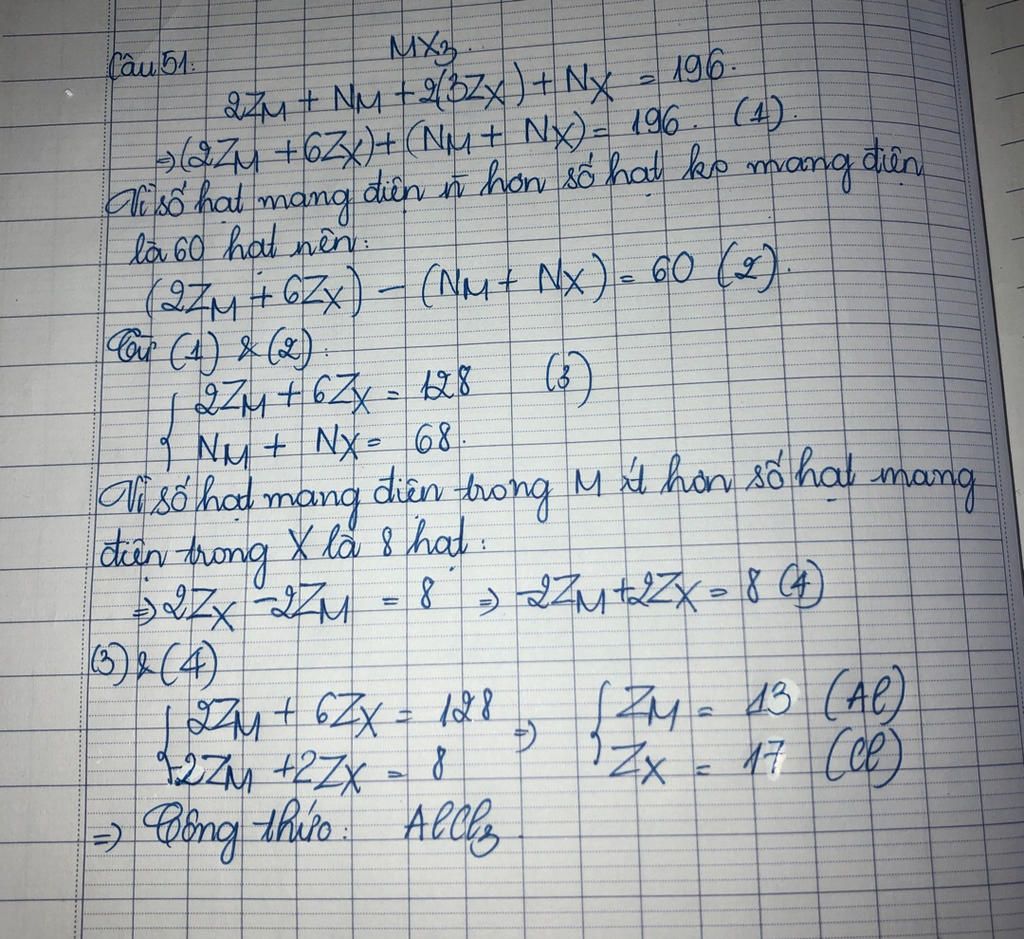 Câu 51: MX3.
2ZM + NM + 2(3ZX) + NX = 196.
⇒(2ZM + 6ZX)+(NM + NX)= 196. (1).
Vì số hạt mang điện n hơn số hạt ko mang điện
là 60 hạt nên:
(2ZM + 6ZX) - (NM + NX)= 60 (2).
Từ (1) & (2):
{ 2ZM + 6ZX = 128 (3)
NM + NX = 68.
Vì số hạt mang điện trong M ít hơn số hạt mang
điện trong X là 8 hạt:
⇒ 2ZX - 2ZM = 8 ⇒ -2ZM+2ZX = 8 (4)
(3) & (4)
{ 2ZM + 6ZX = 128 ⇒ { ZM = 13 (Al)
-2ZM +2ZX = 8 ZX = 17 (Cl)
⇒ Công thức: AlCl3.